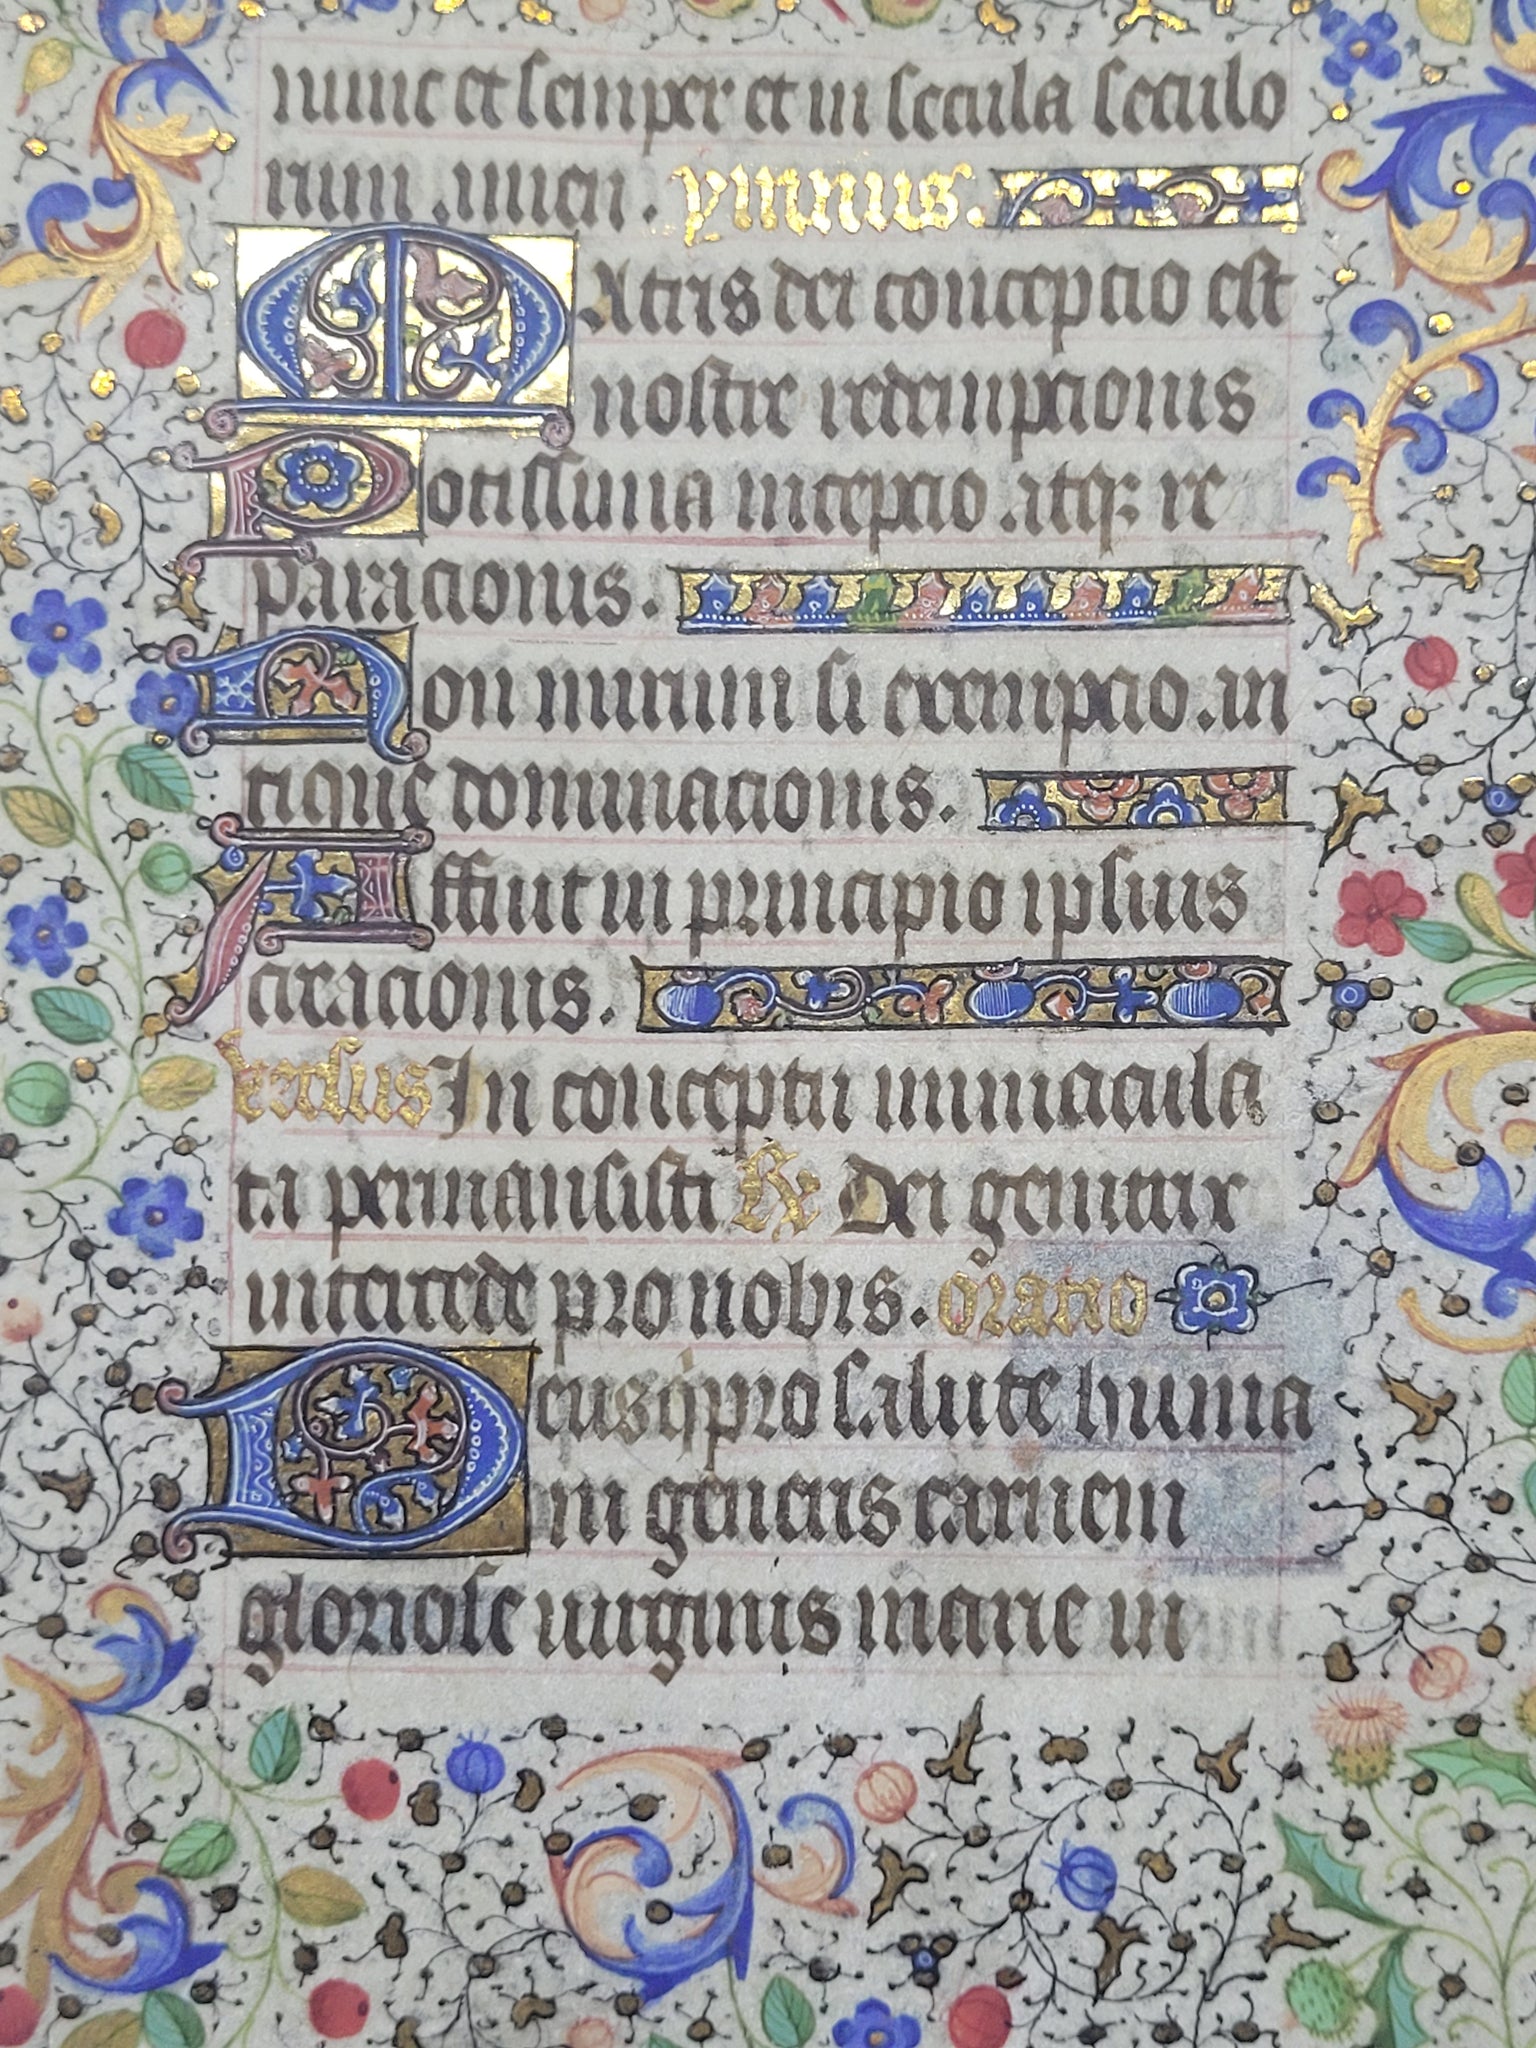 nunc et semper et in secula seculo
rum. Amen. ymnus.
MAtris dei concepcio est
nostre redempcionis
Potissima incepcio atq; re
paracionis.
Non mirum si exempcio an
tique dominacionis.
Affuit in principio ipsius
creacionis.
versus In conceptu immacula
ta permansisti R Dei genitrix
intercede pro nobis. oracio
Deus q pro salute huma
ni generis carnem
gloriose uirginis marie in